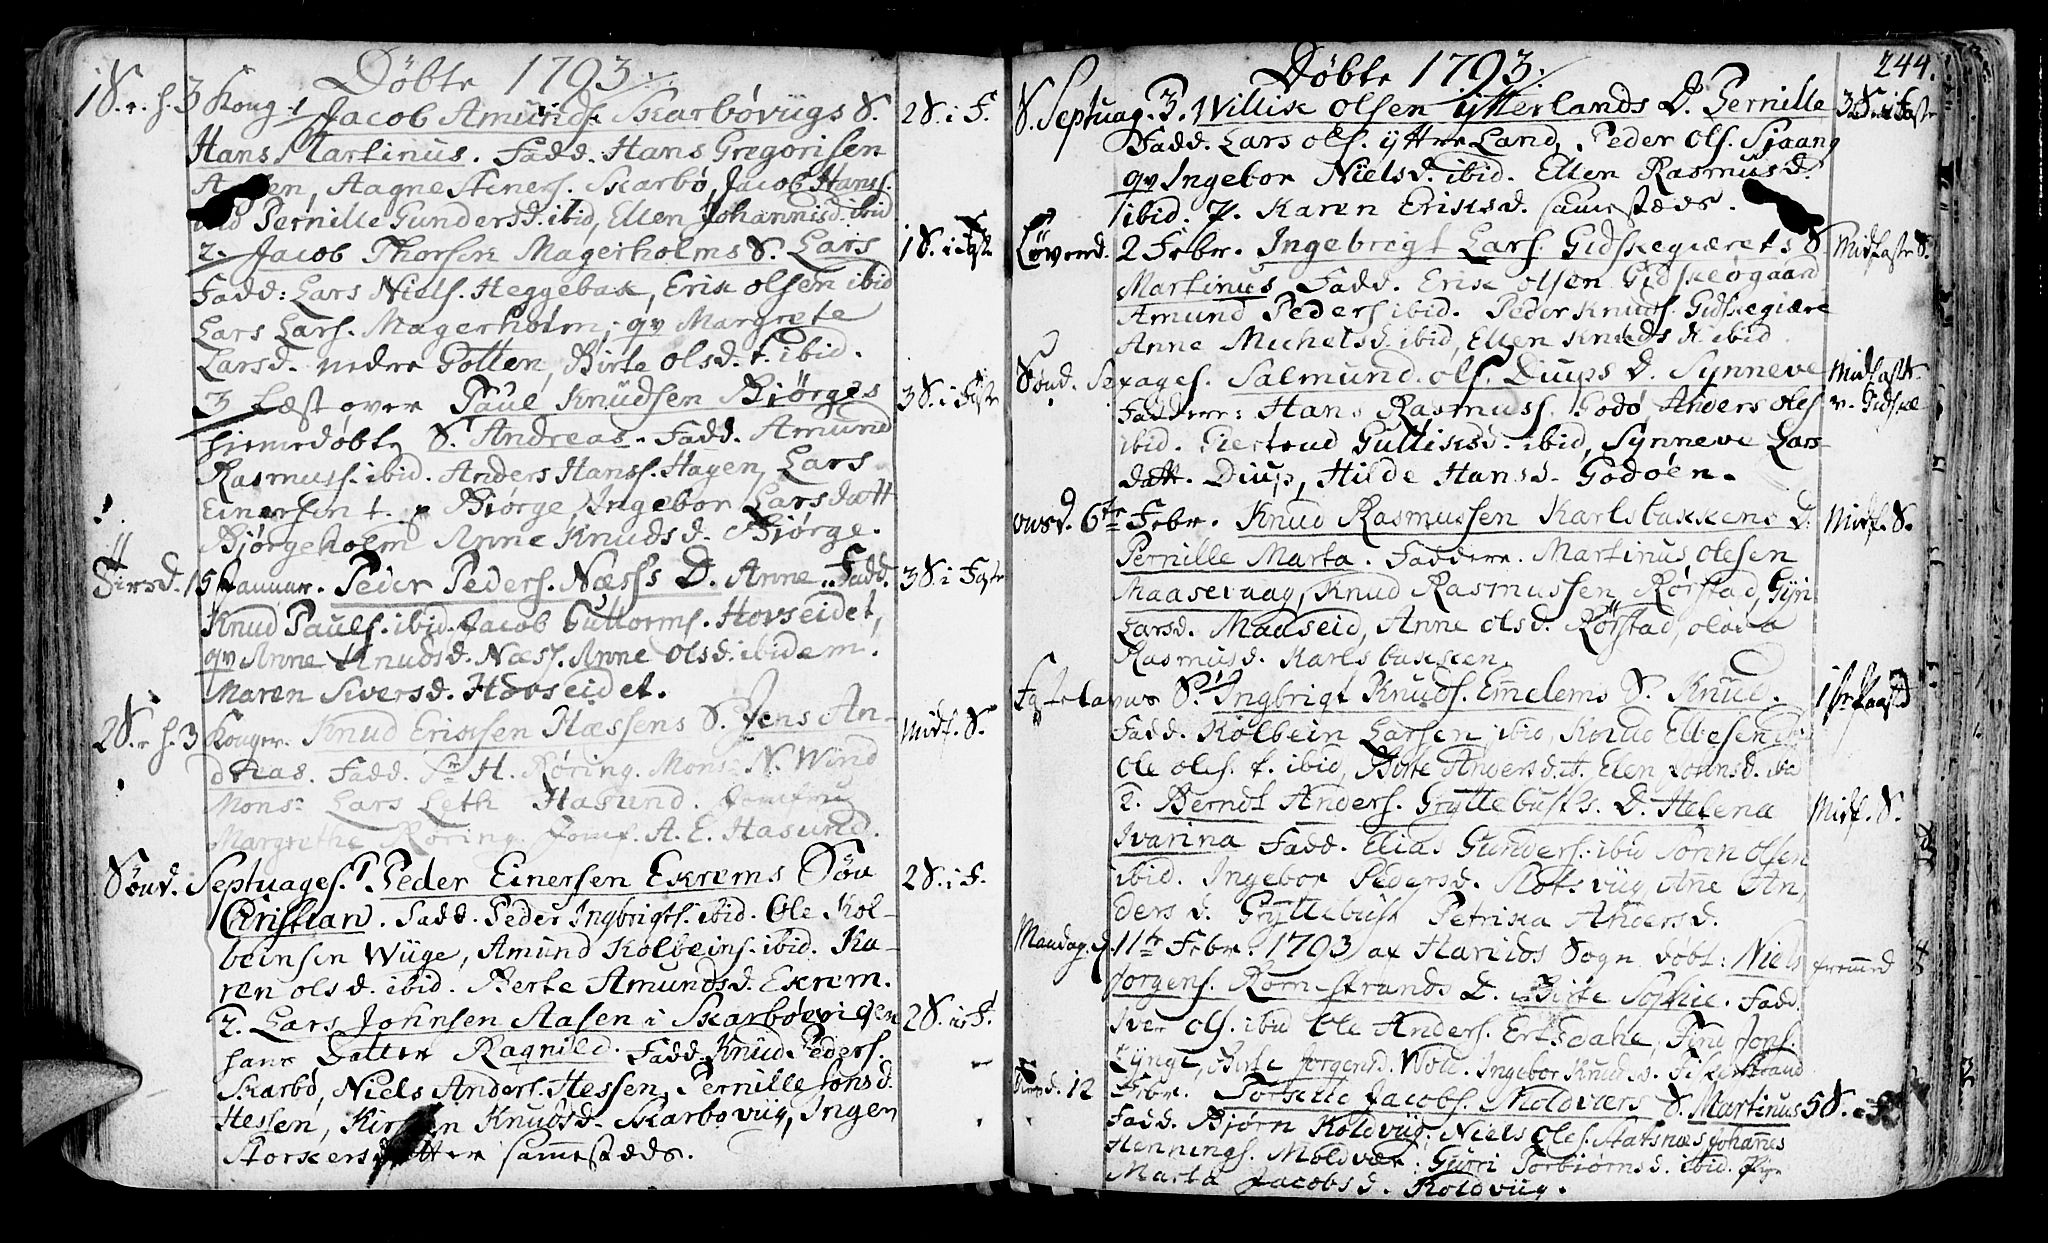 Döbte 1793.
1 S. e. H. 3 Kong. 1 Jacob Amunds. Skarbøviigs S. 2 S. i F.
Hans Martinus. Fadd. Hans Gregorisen
Aagne Steners. Skarbø, Jacob Hanss.
Pernille Gundersd. ibid, Ellen Johannisd. ibid
2. Jacob Thorsen Magerholms S. Lars 1 S. i Fast
Fadd: Lars Niels. Heggebak, Erik olsen ibid
Lars Lars. Magerholm, qv Margrete
Larsd. nedre Gotten, Birte olsd. t. ibid.
3 Læst over Paul Knudsen Bjørges 3 S. i Faste
hiemedøbte S. Andreas. Fadd. Amund
Rasmuss. ibid. Anders Hanss. Hagen, Lars
Einersen t. p Biørge Ingebor Larsdatt
Bjørgeholm Anne Knudsd. Bjørge.
Tirsd. 15 Januar. Peder Peders. Næss's D. Anne. Fadd. 3 S. i Faste
Knud Pauls. ibid. Jacob Guttorms. Hovseidet,
qv Anne Knudsd. Næss. Anne olsd. ibidem.
Maren Siversd. Hovseidet.
2 S. e H. 3 Konger. Knud Eriksen Hæssens S. Jens An- Midf. S.
dreas. Fadd. Sr. H. Röring. Mons: N. Wind
Mons: Lars Leth Hasund. Jomfru
Margrethe Röring Jomf. A. E. Hasund.
Sönd. Septuages. 1 Peder Einersen Ekrems Sön 2 S. i F.
Christian. Fadd. Peder Ingbrigts. ibid. Ole Kol-
beinsen Wiige, Amund Kolbeins. ibid. Ka-
ren olsd. ibid. Berte Amundsd. Ekrem.
2. Lars Johnsen Aasen i Skarbøevigen 2 S. i F.
hans Datter Ragnild. Fadd. Knud Peders.
Skarbø, Niels Anders. Hessen, Pernille Jonsd.
Hessen, Kirsten Knudsd. Skarboviig, Ingen
Storkersdatter sammestæds.
Döbte 1793. 244.
S. Septuag. 3. Willik Olsen ytterlands D. Pernille 3 S. i Faste
Fadd. Lars ols. yttre Land, Peder Ols. Sjaang
qv Ingebor Nielsd. ibid. Ellen Rasmusd.
ibid. p. Karen Eriksd. sammestæds.
Löverd. 2 Febr. Ingebrigt Lars. Gidskegiærets S. Midfaste S.
Martinus Fadd. Erik olsen Gidskeøgaard
Amund Peders ibid. Peder Knuds. Gidskegiære
Anne Michelsd. ibid, Ellen Knudsd. ibid.
Sönd. Sexages. Salmund ols. Diups D. Synneve Midfaste
Faddere: Hans Rasmuss. Godø, Anders oles v. Gidske
ibid. Giertrud Gulliksd. ibid, Synneve Lars
datt. Diup, Hilde Hansd. Godøen.
Onsd. 6te Febr. Knud Rasmussen Karlsbakkens D. Midf. S.
Pernille Marta. Faddere. Martinus olesen
Maasevaag, Knud Rasmussen Rørstad, Gjn
Larsd. Maaseid, Anne olsd. Rørstad, olava
Rasmusd. Karlsbakken.
Fastelavns S. 1 Ingbrigt Knuds. Emelems S. Knud. 1ste Paaskd
Fadd. Kolbein Larsen ibid, Knud Ellesen ibi
Ole oles. t. ibid, Birte Andersd. t. Elen Johnsd. ibid
2. Berndt Anders. Gryttebusts. D. Helena Midf. S.
Ivarina Fadd. Elias Gunders. ibid Sören olsen
ibid. Ingebor Pedersd. Rotsviig, Anne An,
dersd. Gryttebust Petrika Andersd.
Mandag. d. 11te Febr. 1793 af Hariids Sogn döbt: Niels fremmed
Jorgens. Rømstrands D. Birte Sophie. Fadd.
Iver ols. ibid Ole Anders. Ertsdahe, Find Jons.
Lynge, Birte Jorgensd. Wold. Ingebor Knudsd. Fiskerstrand
Tirsd. 12 Febr. Torkild Jacobs. Moldværs S. Martinus 5 S. i F
Fadd. Bjørn Koldviig: Niels Oles. Statsnæs Johannes
Hennings. Moldvær: Gurri Torbiørnsd. ibid. Pige
Marta Jacobsd. Koldviig.